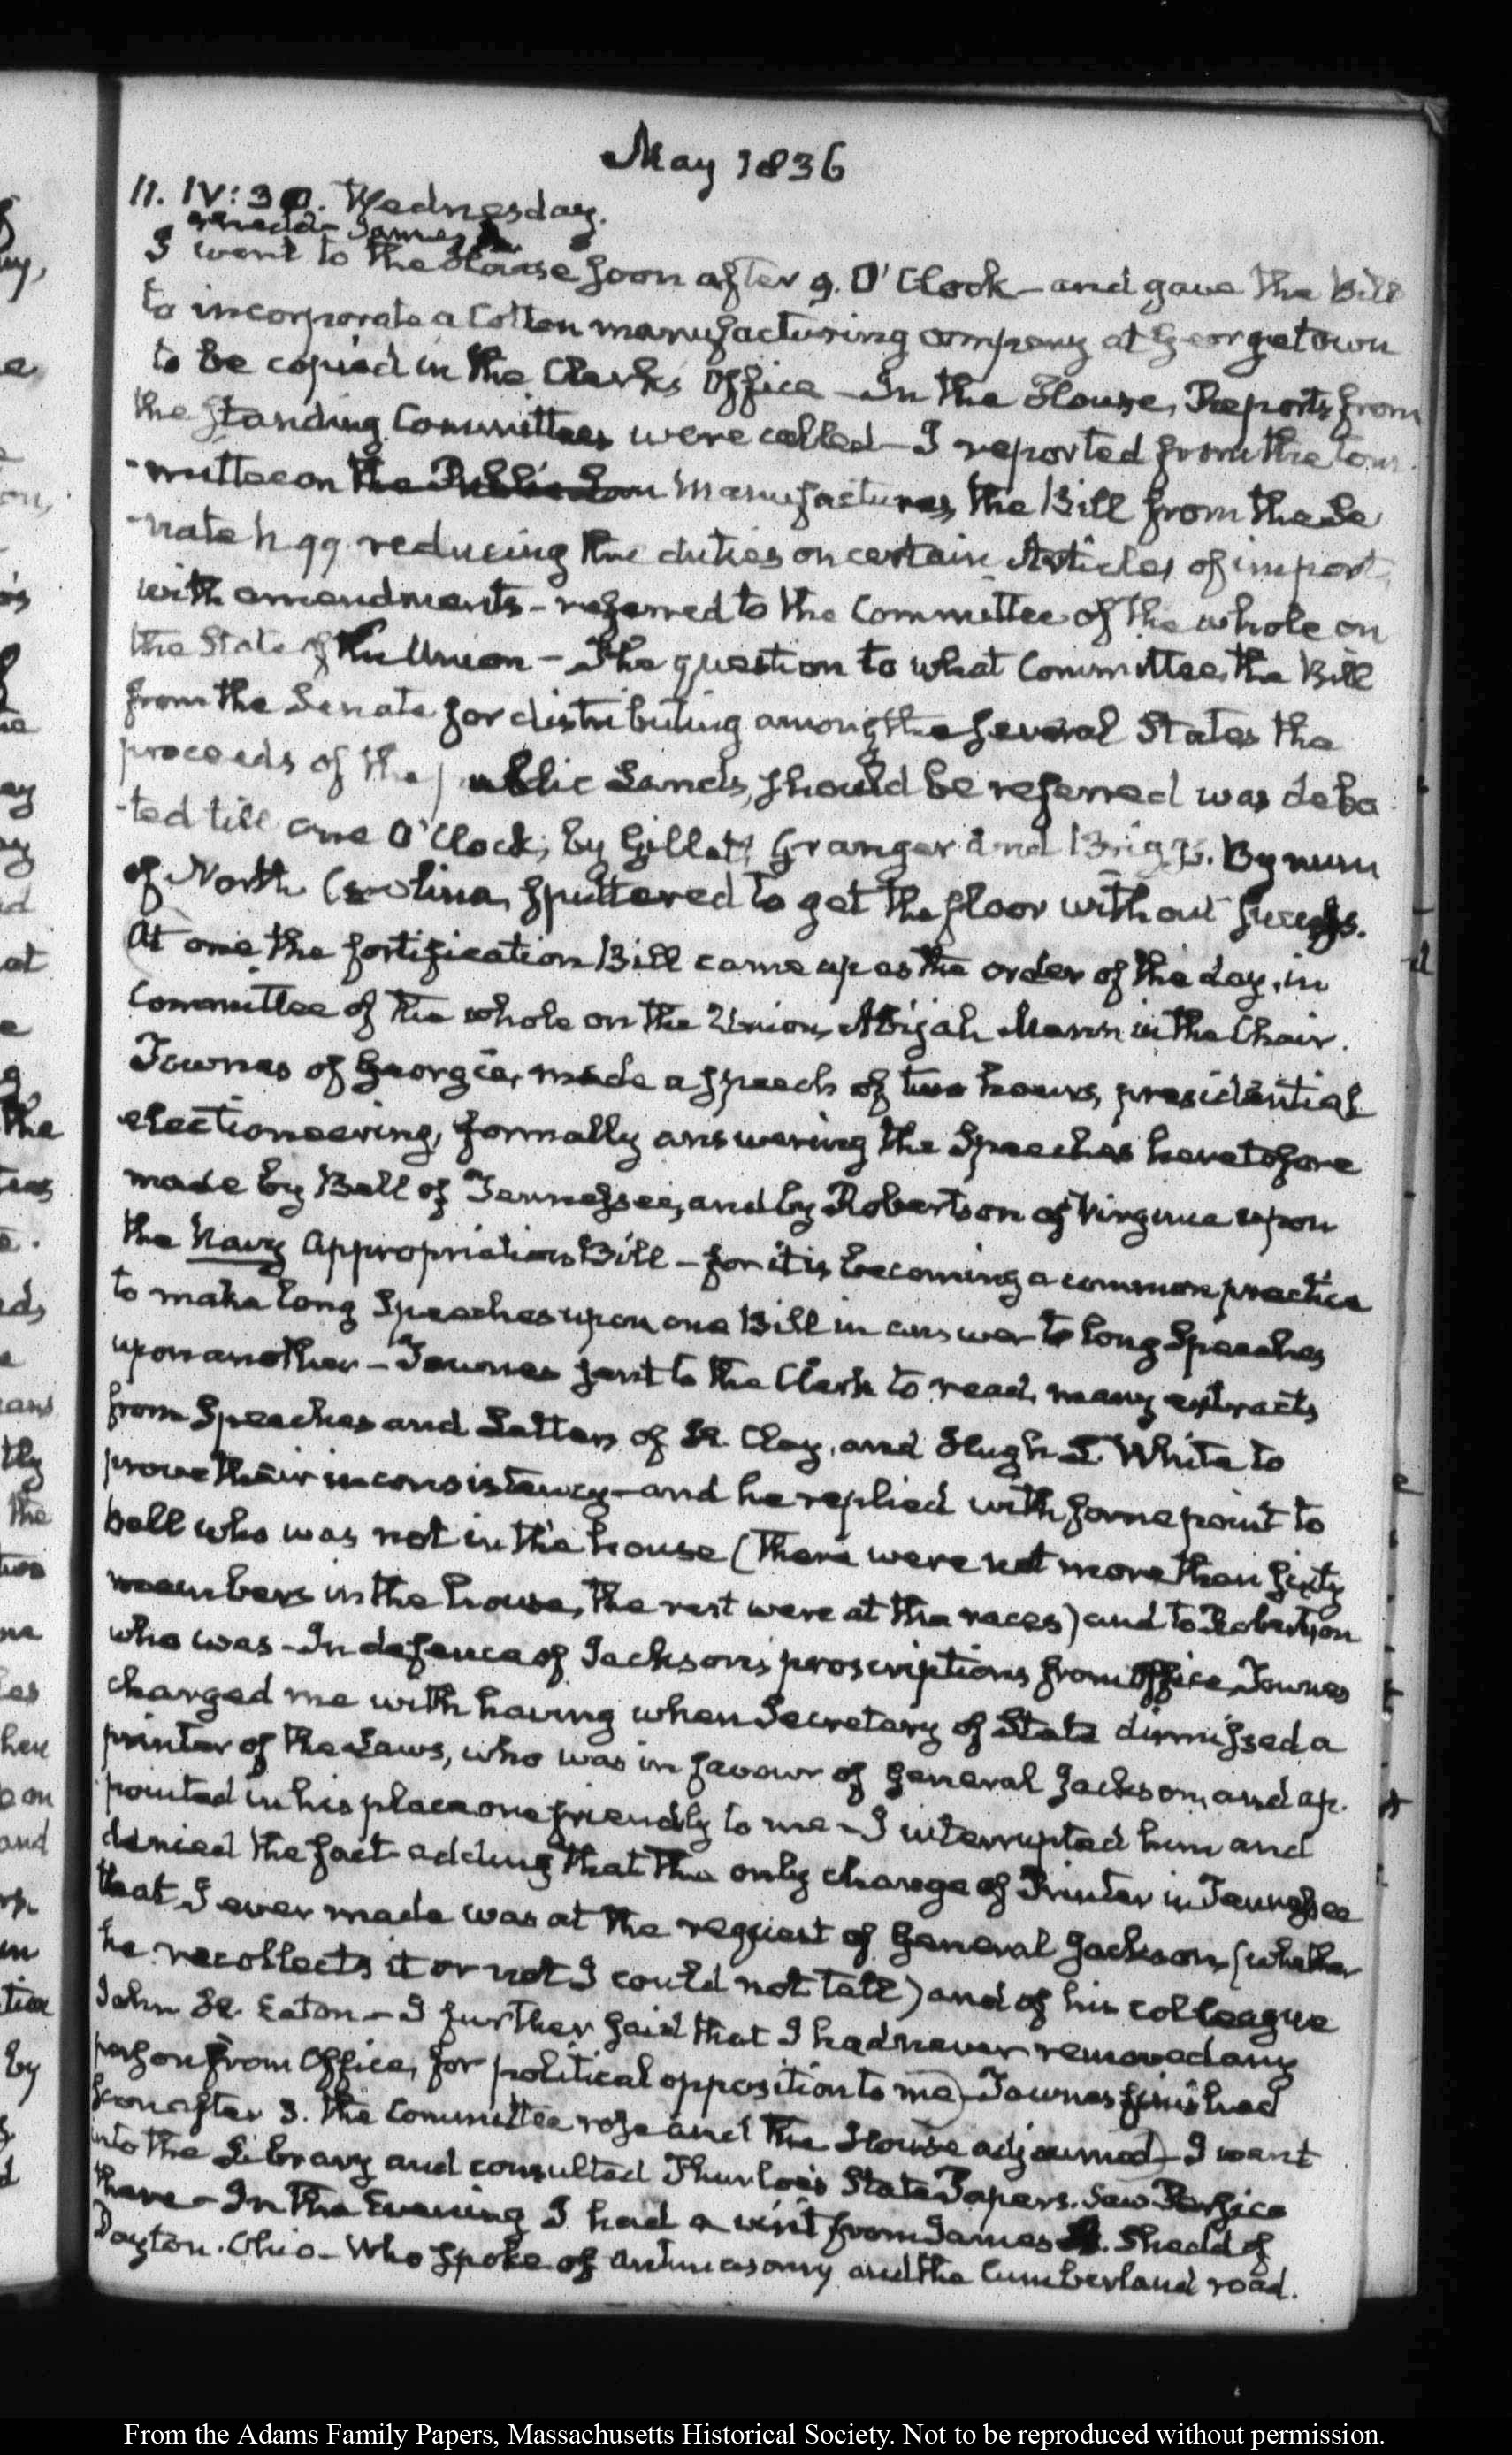 May 1836
11. IV:30. Wednesday.
Shedd—James
I went to the House soon after 9. O'Clock—and gave the Bill
to incorporate a Cotton manufacturing company at Georgetown
to be copied in the Clerk's Office—In the House, Reports from
the standing Committees were called—I reported from the Com
-mittee on the Public Lan Manufactures, the Bill from the Se
-nate N 99. reducing the duties on certain Articles of import,
with amendments—referred to the Committee of the whole on
the State of the Union—The question to what Committee, the Bill
from the Senate for distributing among the several States the
proceeds of the public Lands, should be referred was deba
-ted till one O'Clock; by Gillet, Granger and Briggs. Bynum
of North Carolina, sputtered to get the floor without success.
At one the fortification Bill came up as the order of the day, in
Committee of the whole on the Union, Abijah Mann in the Chair.
Townes of Georgia, made a speech of two hours, presidential
electioneering, formally answering the Speeches heretofore
made by Bell of Tennessee, and by Robertson of Virginia upon
the Navy Appropriations Bill—for it is becoming a common practice
to make long Speeches upon one Bill in answer to long Speeches
upon another—Townes sent to the Clerk to read, many extracts
from Speeches and Letters of H. Clay, and Hugh L. White to
prove their inconsistency—and he replied with some point to
Bell who was not in the house (there were not more than sixty
members in the house, the rest were at the races) and to Robertson
who was—In defence of Jackson's proscriptions from Office, Townes
charged me with having when Secretary of State dismissed a
printer of the Laws, who was in favour of General Jackson, and ap-
pointed in his place one friendly to me—I interrupted him and
denied the fact—adding that the only change of Printer in Tennessee
that I ever made was at the request of General Jackson, (whether
he recollects it or not I could not tell) and of his colleague
John H. Eaton—I further said that I had never removed any
person from Office, for political opposition to me—Townes finished
soon after 3. the Committee rose and the House adjourned—I went
into the Library and consulted Thurloe's State Papers. Saw Persico
there—In the Evening I had a visit from James . Shedd of
Dayton. Ohio—Who spoke of antimasonry and the Cumberland road.
From the Adams Family Papers, Massachusetts Historical Society. Not to be reproduced without permission.